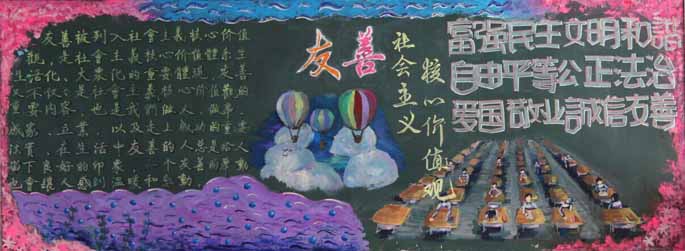 友善被列入社會主義核心價值
觀，是社會主義核心價值體系生
活化、大衆化的重要體現。友善
不僅是社會主義核心價值觀的
重要内容，也是我們做人、做事、
成家、立業、以及走上成功的重要
法寶。在生活中友善的人总是给人
留下良好的印象，一个友善的舉動
也會讓人感到温暖和感動
友善
社会主义
核心价值观
富强民主文明和諧
自由平等公正法治
爱国敬业誠信友善